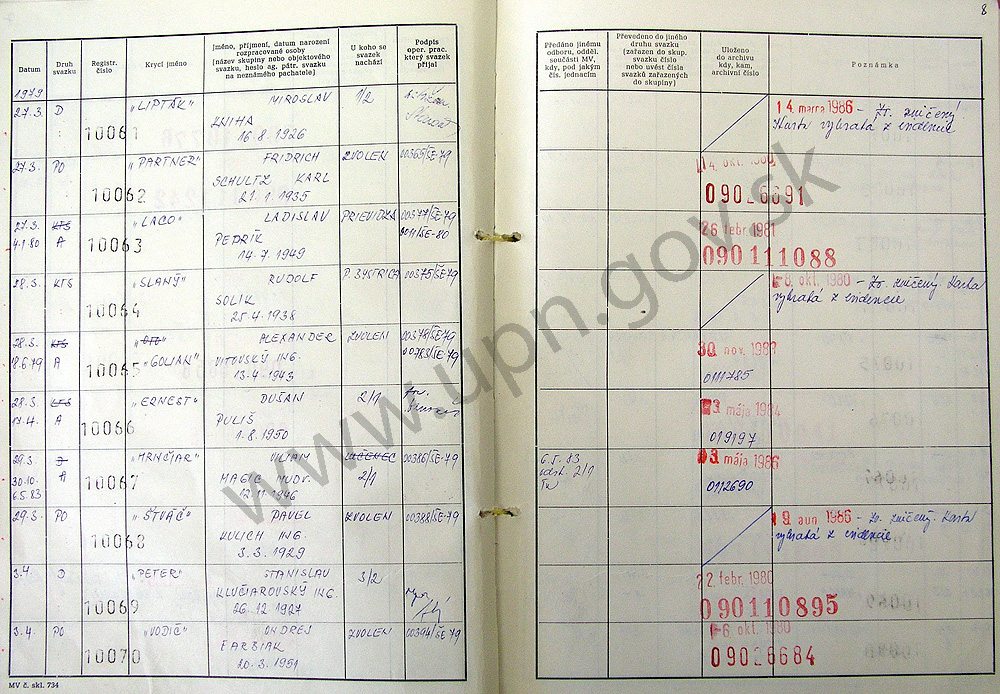 8
Datum
Druh svazku
Registr. číslo
Krycí jméno
Jméno, příjmení, datum narození
rozpracované osoby
(název skupiny nebo objektového
svazku, heslo ag. pátr. svazku
na neznámého pachatele)
U koho se
svazek
nachází
Podpis
oper. prac.
který svazek
přijal
Předáno jinému
odboru, odděl.
součásti MV,
kdy, pod jakým
čís. jednacím
Převedeno do jiného
druhu svazku
(zařazen do skup.
svazku číslo
nebo uvést čísla
svazků zařazených
do skupiny)
Uloženo
do archivu
kdy, kam,
archivní číslo
Poznámka
1979
27.3. D 10061 „LIPTÁK" MIROSLAV 1/2
KNIHA
16.8.1926
14. marca 1986 - Zv. zničený!
Karta vybratá z evidencie
27.3. PO 10062 „PARTNER" FRIDRICH ZVOLEN 00365/ŠE-79
SCHULTZ KARL
21.1.1935
14. okt. 1980
09026691
27.3. KTS 10063 „LACO" LADISLAV PRIEVIDZA 00377/ŠE-79
4.1.80 A PEDRÍK 0011/ŠE-80
14.7.1949
26 febr 1981
090111088
28.3. KTS 10064 „SLANÝ" RUDOLF P. BYSTRICA 00375/ŠE-79
SOLÍK
25.4.1938
8. okt. 1980 - Zv. zničený Karta
vybratá z evidencie
28.3. KTS 10065 ALEXANDER ZVOLEN 00378/ŠE-79
18.6.79 A „GOLIAN" VITOVSKÝ ING. 00763/ŠE-79
13.4.1943
30 nov. 1987
0111785
28.3. KTS 10066 „ERNEST" DUŠAN 2/1
17.4. A PULIŠ
1.8.1950
3. mája 1984
019197
29.3. D 10067 „HRNČIAR" VILIAM LUČENEC 00386/ŠE-79
30.10. A MAGIC MUDR. 2/1
6.5.83 12.11.1946
6.5.83
odst. 2/1
03 mája 1986
0112690
29.3. PO 10068 „ŠTVÁČ" PAVEL ZVOLEN 00388/ŠE-79
KULICH ING.
3.3.1929
19. jun 1986 - Zv. zničený. Karta
vybratá z evidencie
3.4. D 10069 „PETER" STANISLAV 3/2
KLUČIAROVSKÝ ING.
26.12.1927
22 febr. 1980
090110895
3.4. PO 10070 „VODIČ" ONDREJ ZVOLEN 00394/ŠE-79
FARBIAK
20.3.1951
6. okt. 1980
09026684
MV č. skl. 734
www.upn.gov.sk